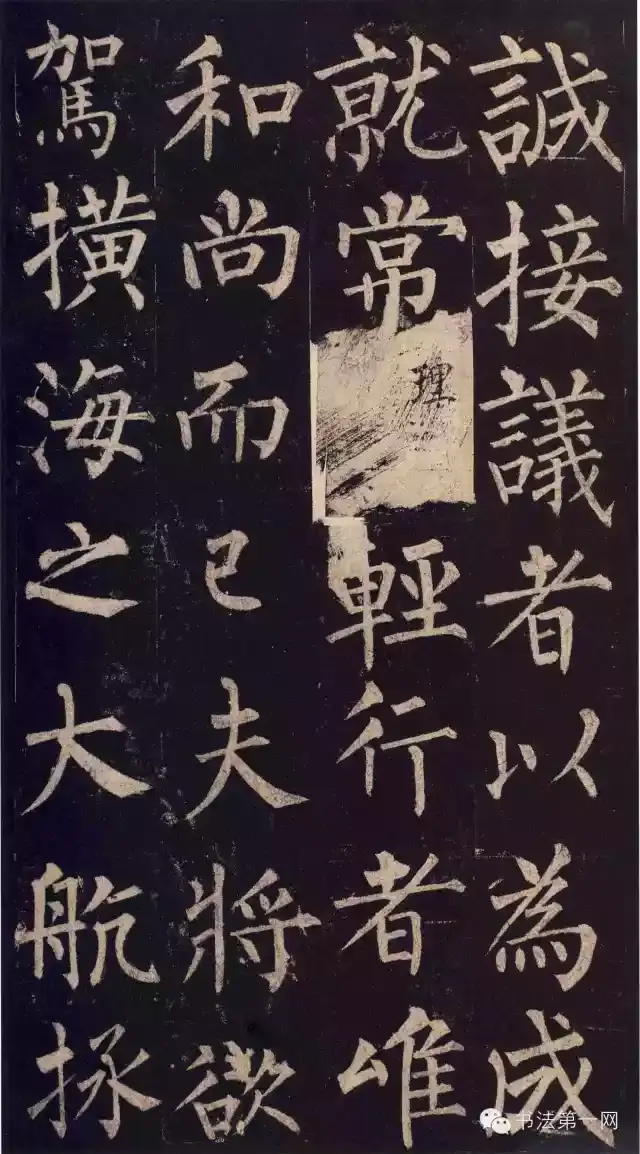 誠接議者以為成
就常理輕行者唯
和尚而已夫將欲
駕撗海之大航拯
书法第一网